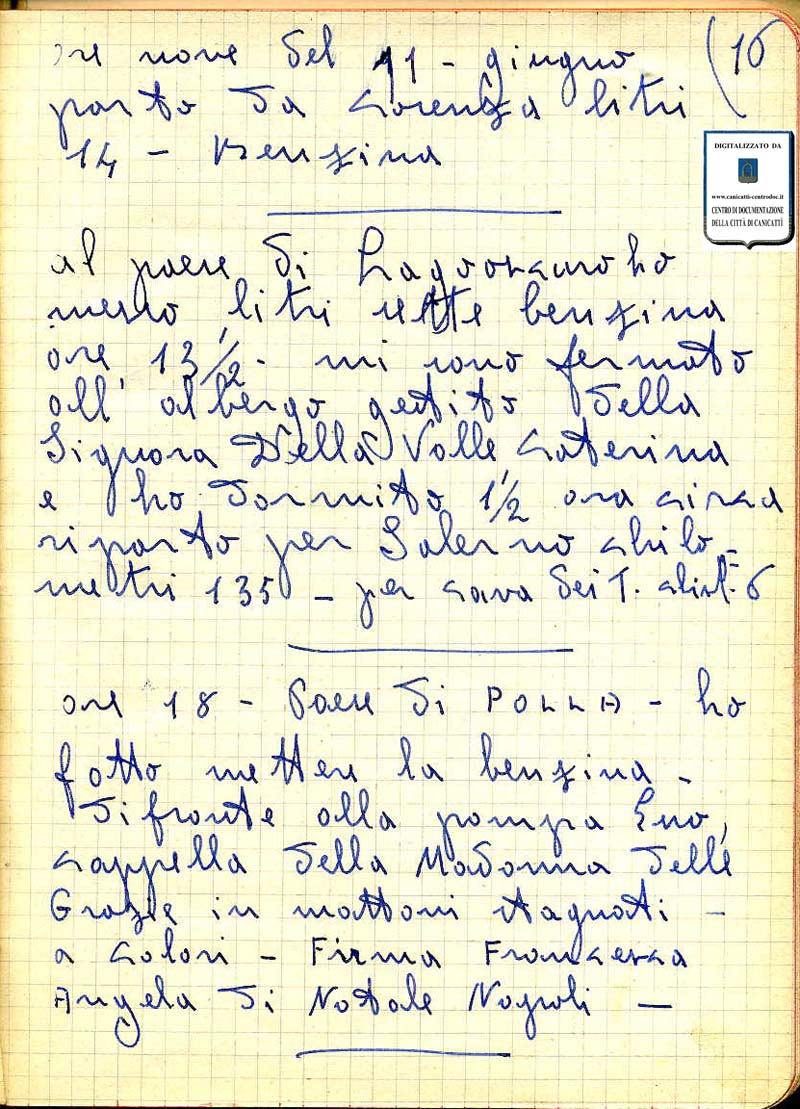 ore nove del 11 - giugno (16
parto da Cosenza litri
14 - Benzina
DIGITALIZZATO DA
www.canicatti-centrodoc.it
CENTRO DI DOCUMENTAZIONE
DELLA CITTÀ DI CANICATTÌ
al paese di ho
messo litri sette benzina
ore 13 1/2 - mi sono fermato
all'albergo gestito della
Signora Della Valle Caterina
e ho dormito 1 1/2 ora circa
riparto per Salerno chilo-
metri 135 - per Cava dei T. 6
ore 18 - Paese di POLLA - ho
fatto mettere la benzina -
difronte alla pompa
cappella della Madonna delle
Grazie in mattoni stagnati -
a colori - Firma Francesca
Angela di Natale Napoli -